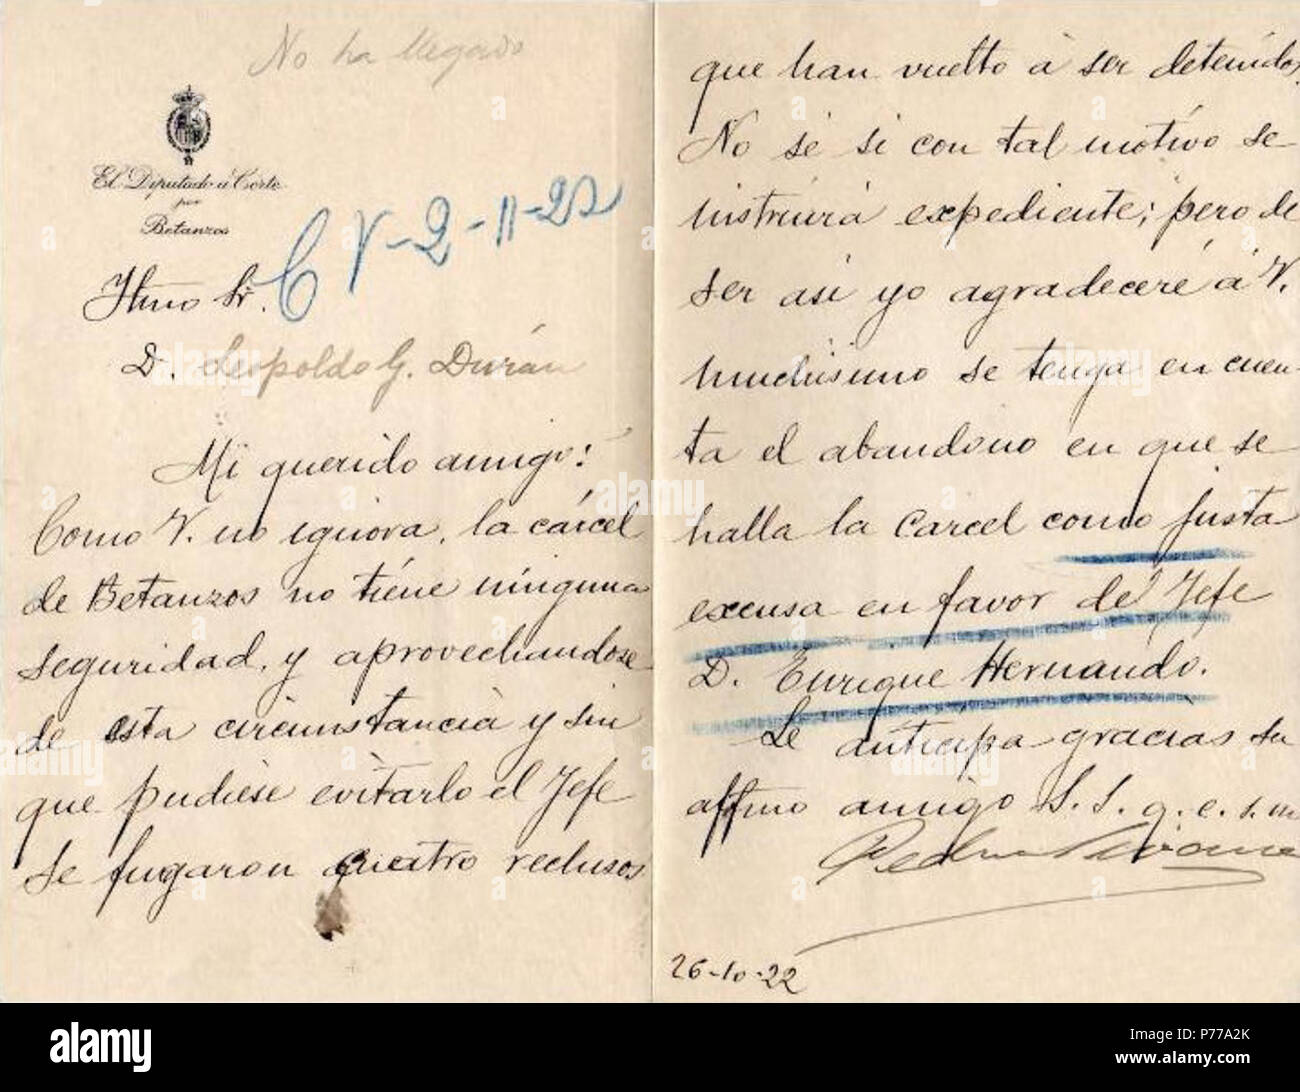 No ha llegado
El Diputado a Cortes
por
Betanzos
C V-2-11-22
Iltmo Sr.
D. Leopoldo G. Durán
Mi querido amigo:
Como V. no ignora, la cárcel
de Betanzos no tiene ninguna
seguridad, y aprovechandose
de esta circunstancia y sin
que pudiese evitarlo el Jefe
se fugaron cuatro reclusos
que han vuelto á ser detenidos.
No se si con tal motivo se
instruirá expediente; pero de
ser asi yo agradeceré á V.
muchisimo se tenga en cuen-
ta el abandono en que se
halla la carcel como justa
excusa en favor del Jefe
D. Enrique Hernando.
Le anticipa gracias su
affmo amigo S. S. q. e. s. m
Pedro
26-10-22
alamy
alamy
P77A2K
www.alamy.com